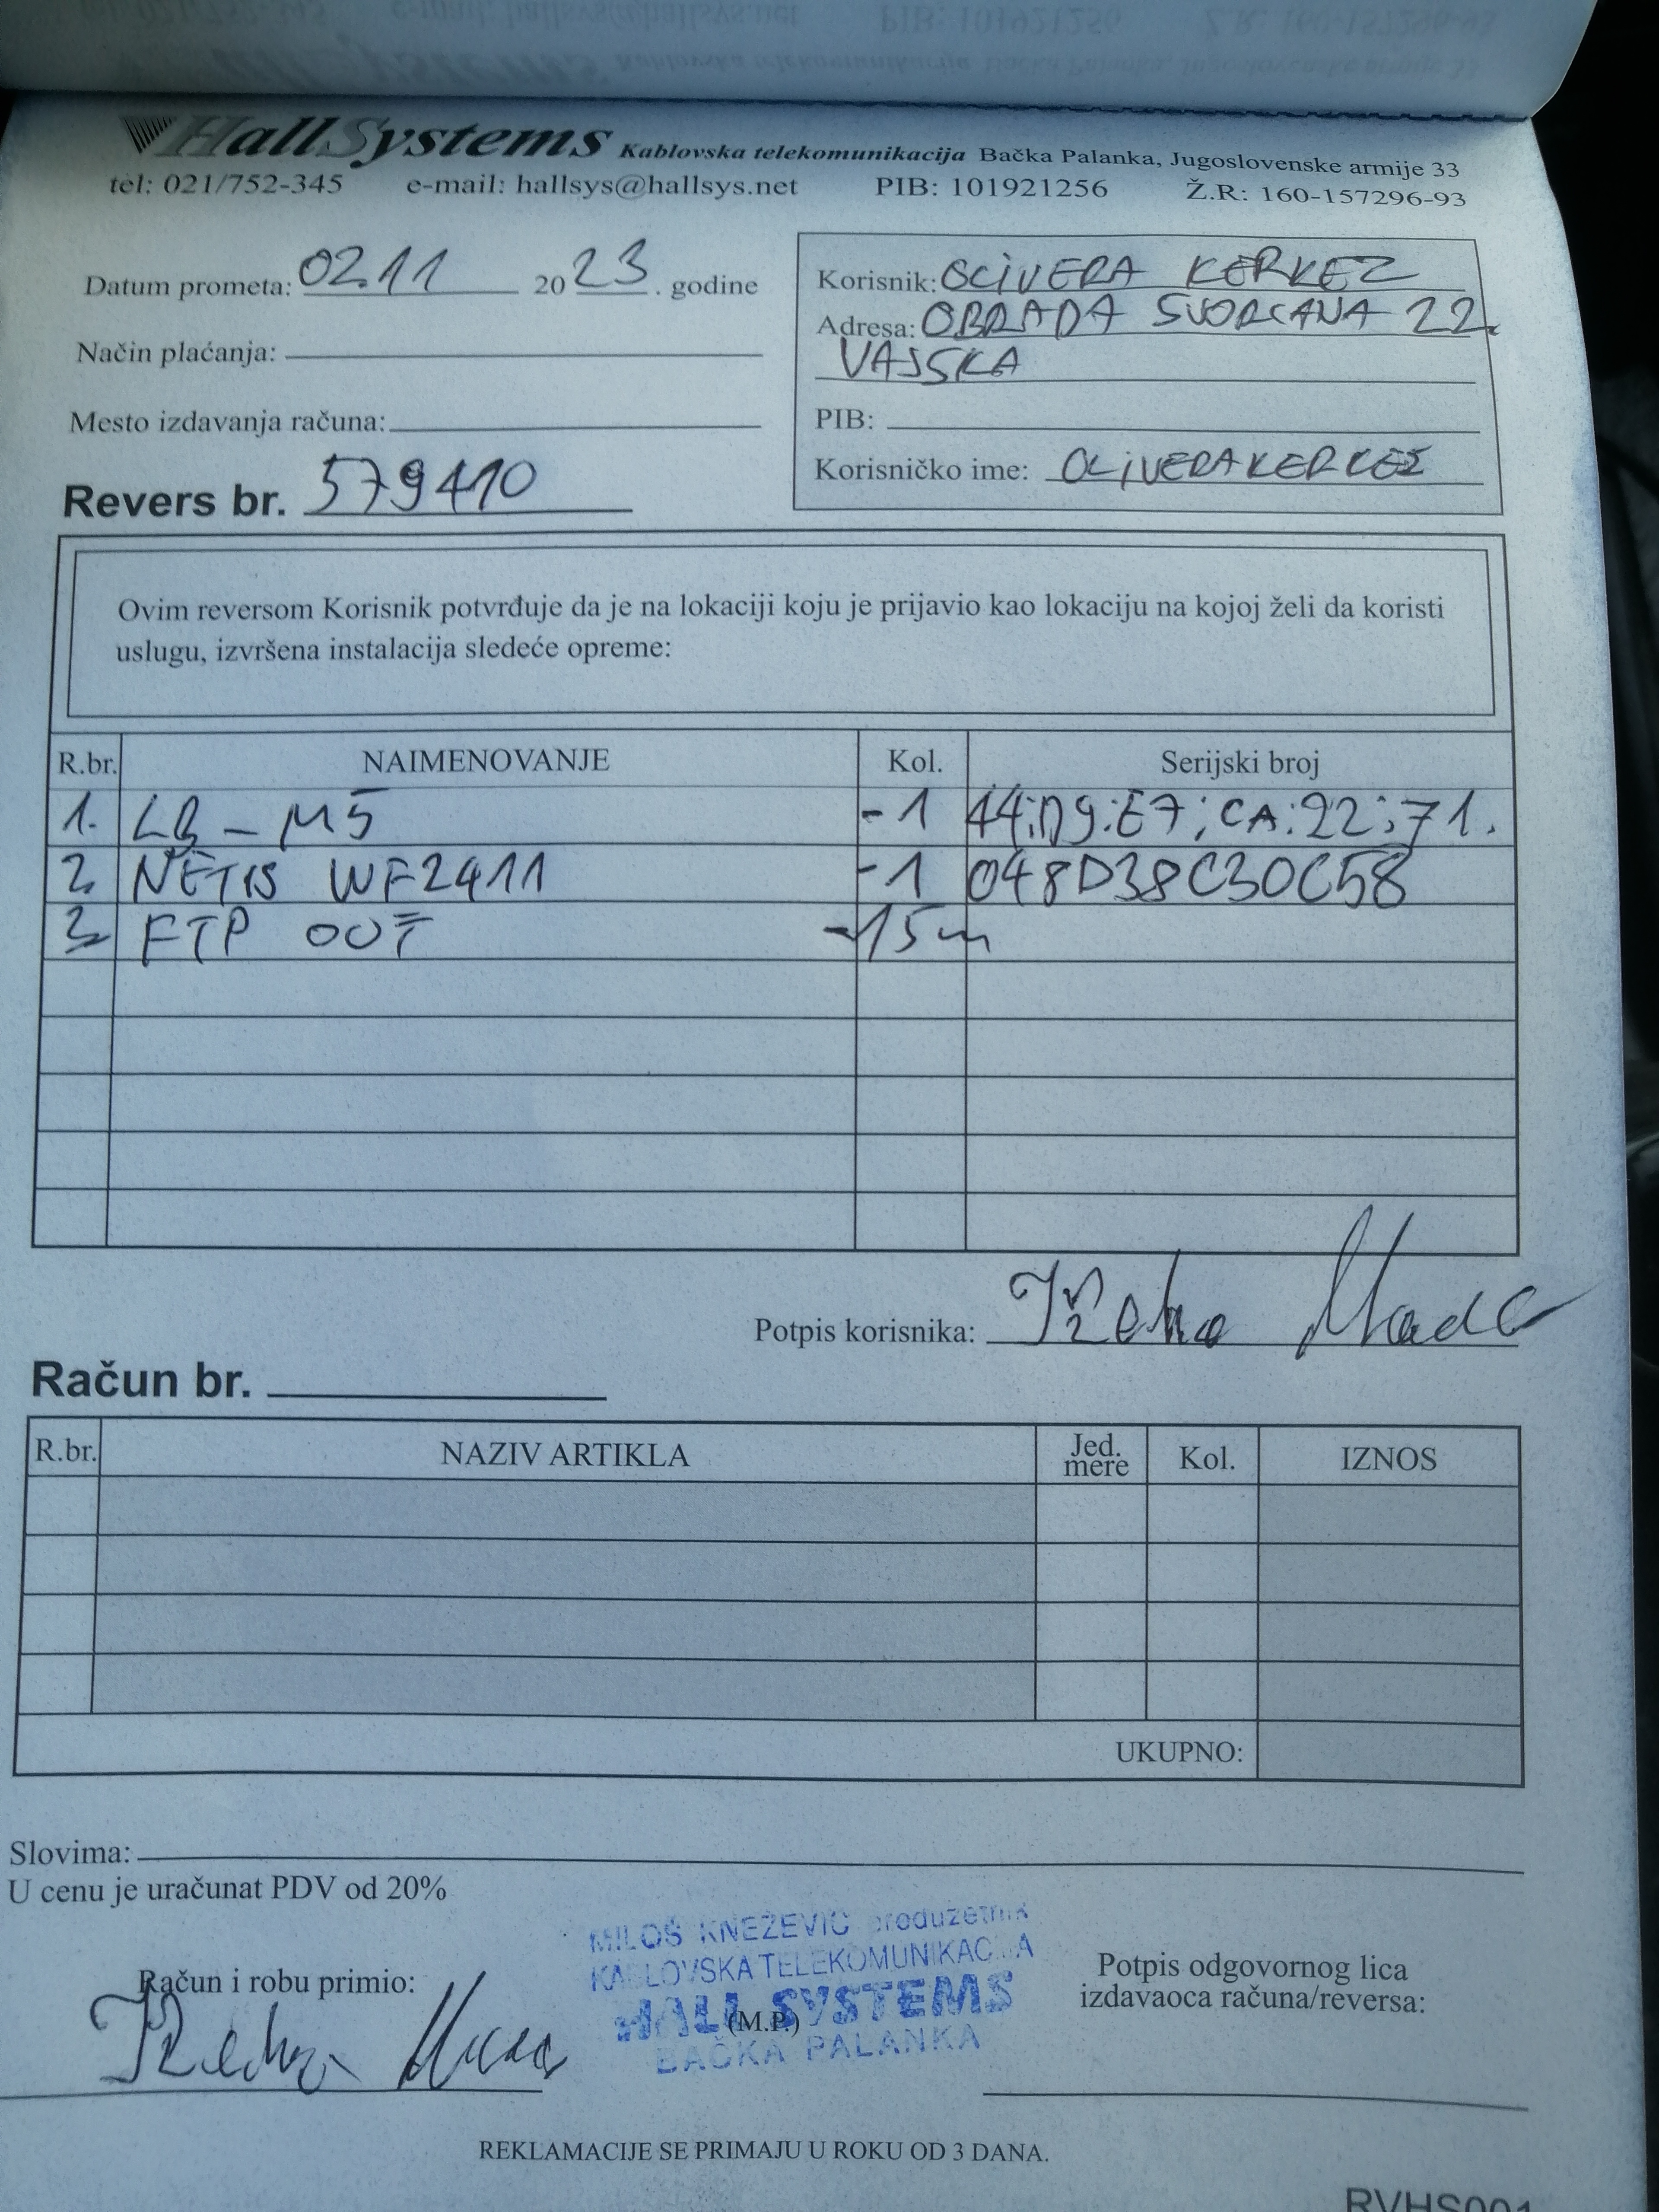 HallSystems Kablovska telekomunikacija Bačka Palanka, Jugoslovenske armije 33
tel: 021/752-345 e-mail: hallsys@hallsys.net PIB: 101921256 Ž.R: 160-157296-93
Datum prometa: 02.11 2023. godine
Način plaćanja:
Mesto izdavanja računa:
Revers br. 579410
Korisnik: OLIVERA KERKEZ
Adresa: OBRADA SVORCANA 22.
VAJSKA
PIB:
Korisničko ime: OLIVERAKERKEZ
Ovim reversom Korisnik potvrđuje da je na lokaciji koju je prijavio kao lokaciju na kojoj želi da koristi
uslugu, izvršena instalacija sledeće opreme:
R.br. NAIMENOVANJE Kol. Serijski broj
1. LB - M5 -1 44:D9:E7:CA:22:71.
2. NETIS WF2411 -1 048D38C30C58
3. FTP OUT -15m
Potpis korisnika:
Račun br.
R.br. NAZIV ARTIKLA Jed. mere Kol. IZNOS
UKUPNO:
Slovima:
U cenu je uračunat PDV od 20%
MILOŠ KNEŽEVIĆ preduzetnik
KABLOVSKA TELEKOMUNIKACIJA
HALL SYSTEMS
(M.P.)
BAČKA PALANKA
Račun i robu primio:
Potpis odgovornog lica
izdavaoca računa/reversa:
REKLAMACIJE SE PRIMAJU U ROKU OD 3 DANA.
RVHS001